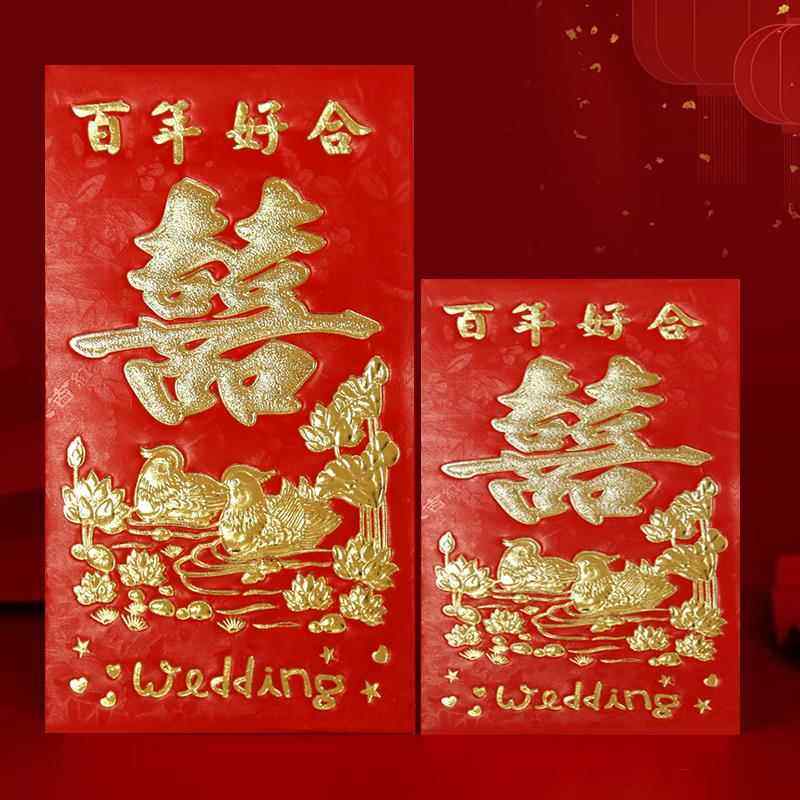 百年好合
囍
Wedding
百年好合
囍
Wedding